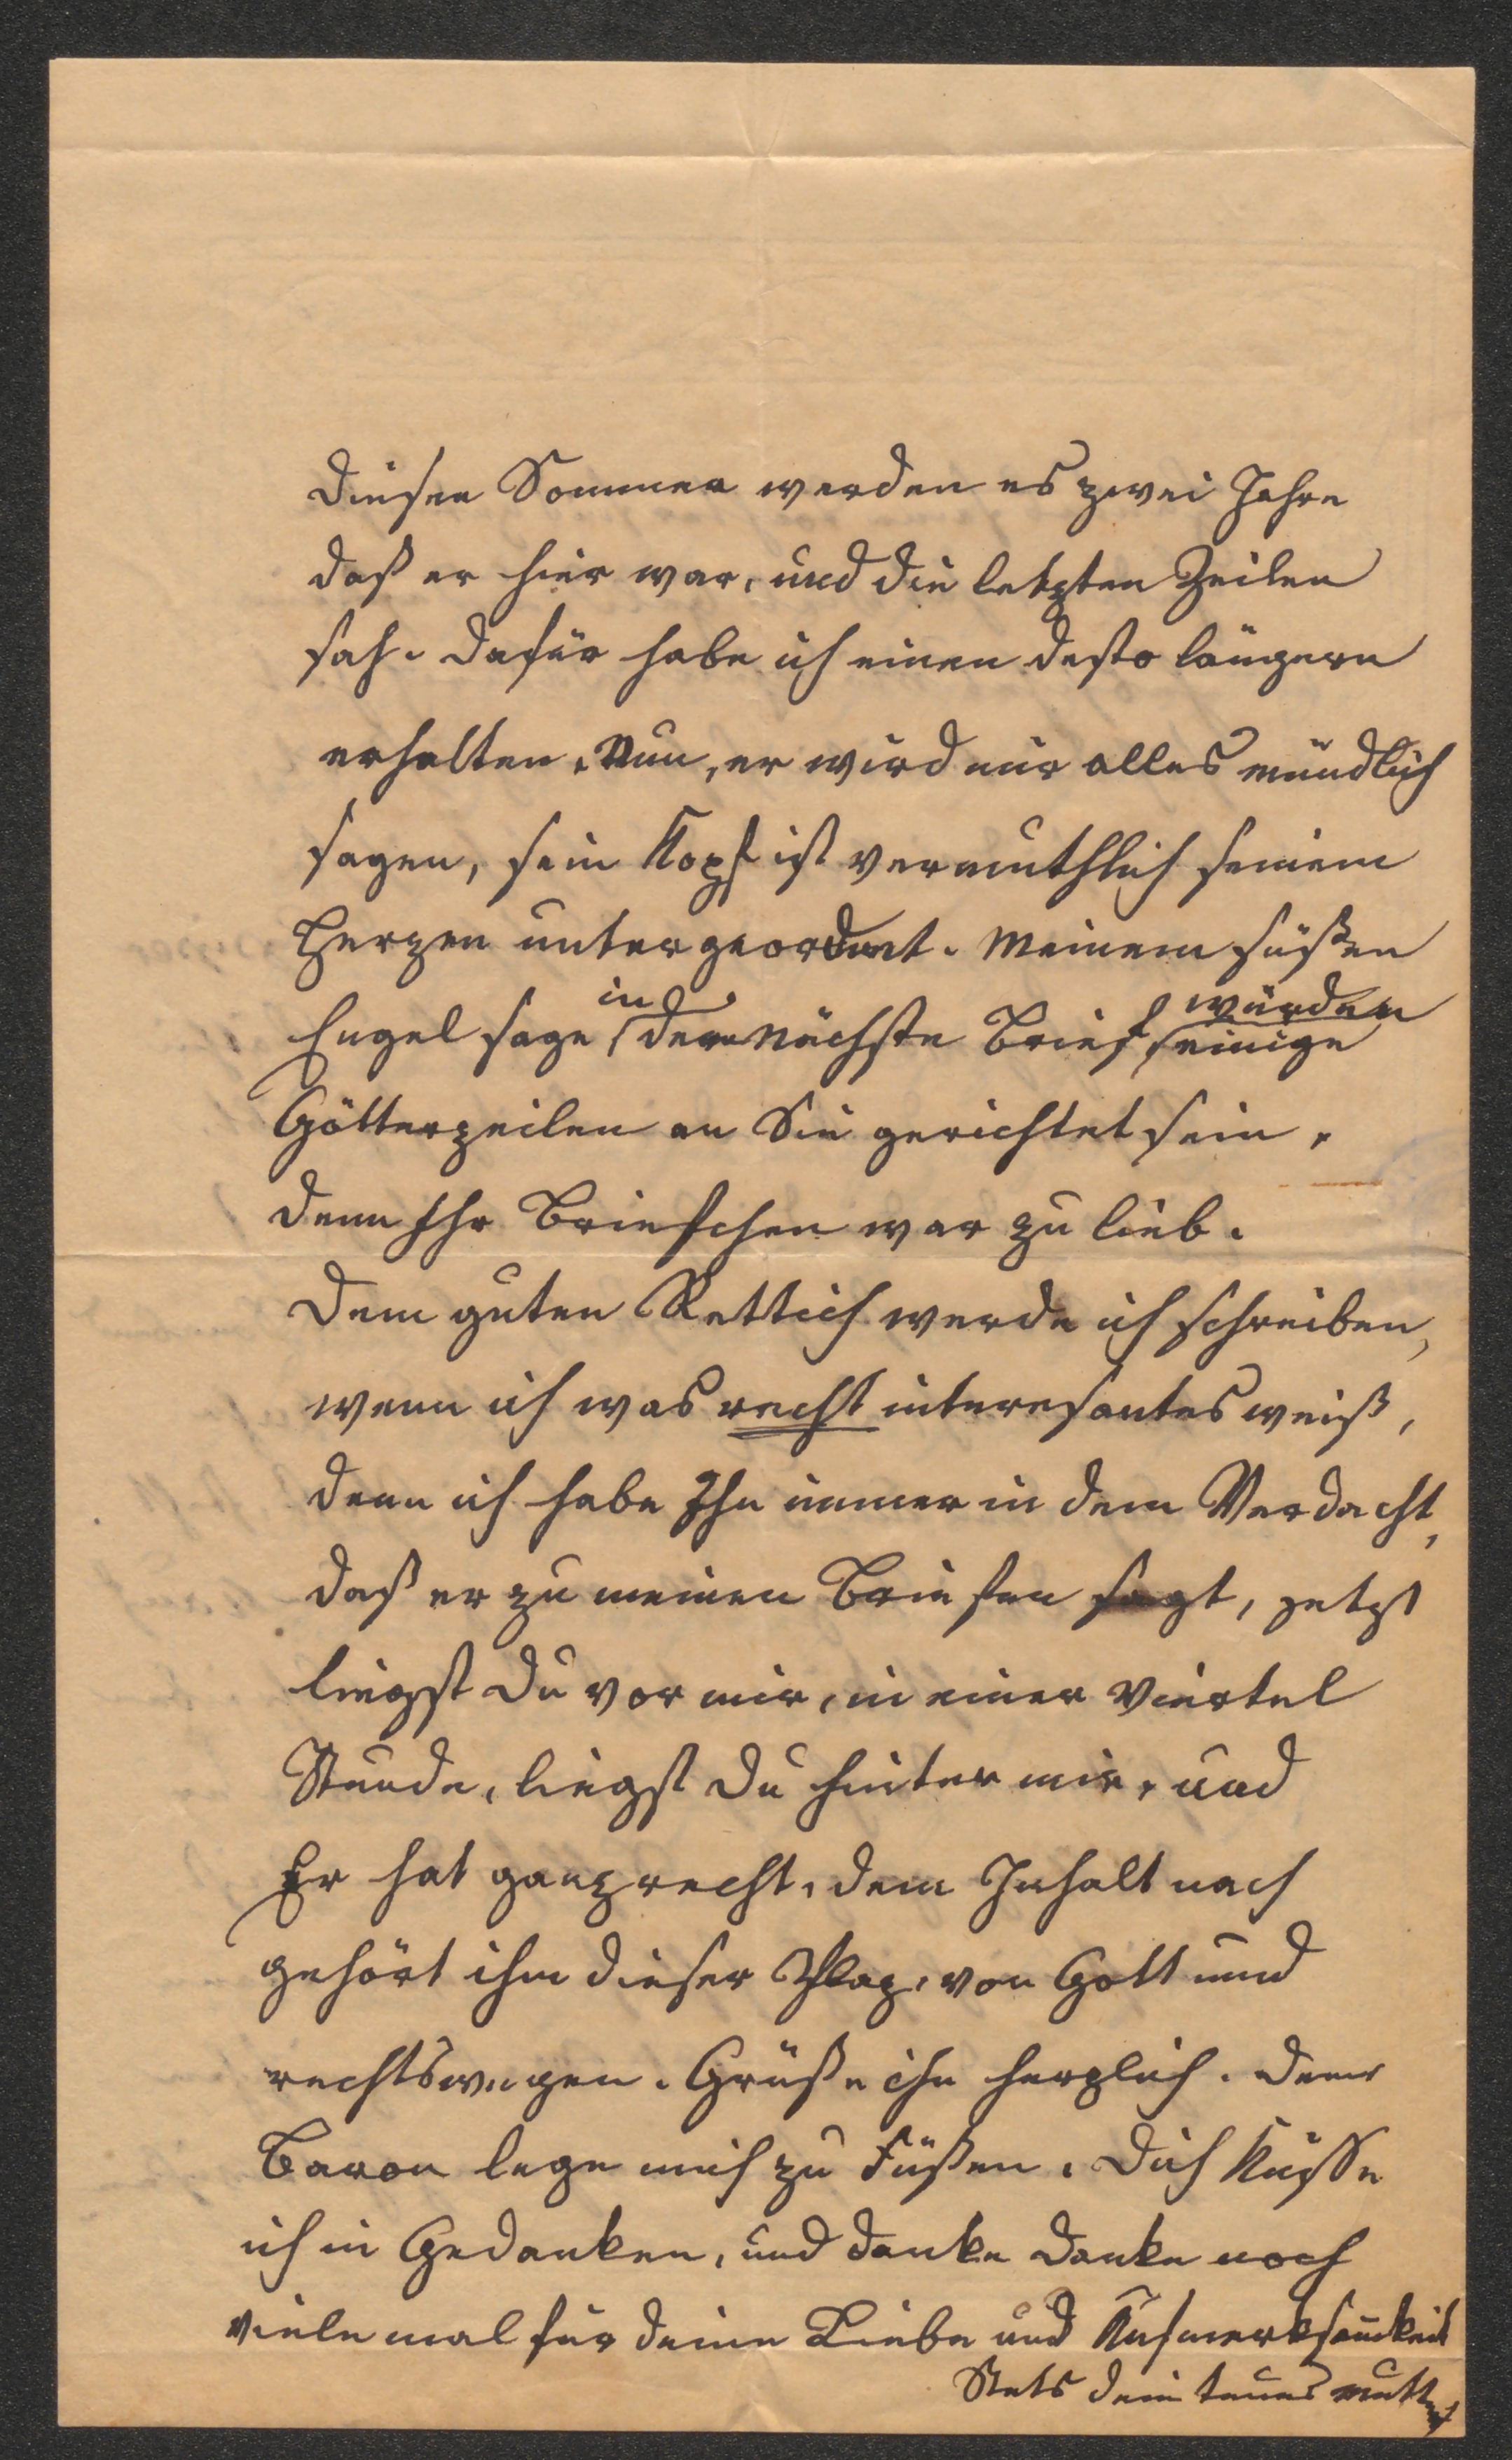 Diesen Sommer werden es zwei Jahre
daß er hier war, und die letzten Zeilen
sah. Dafür habe ich einen desto längern
erhalten. Nun, er wird mir alles mündlich
sagen, sein Kopf ist vermuthlich seinem
Herzen untergeordnet. Meinem süßen
Engel sage in der nächste Brief würden einige
Götterzeilen an Sie gerichtet sein,
denn Ihr Briefchen war zu lieb.
Dem guten Rettich werde ich schreiben,
wenn ich was recht interesantes weiß,
denn ich habe Ihn immer in dem Verdacht,
daß er zu meinen Briefen sagt, jetzt
liegst Du vor mir, in einer Viertel
Stunde, liegst Du hinter mir, und
Er hat ganz recht, dem Inhalt nach
gehört ihm dieser Plaz, von Gott und
rechtswegen. Grüße ihn herzlich. Dem
Baron lege mich zu Füßen. Dich küsse
ich in Gedanken, und danke danke noch
viele mal für deine Liebe und Aufmerksamkeit
Stets dein treues Mutter